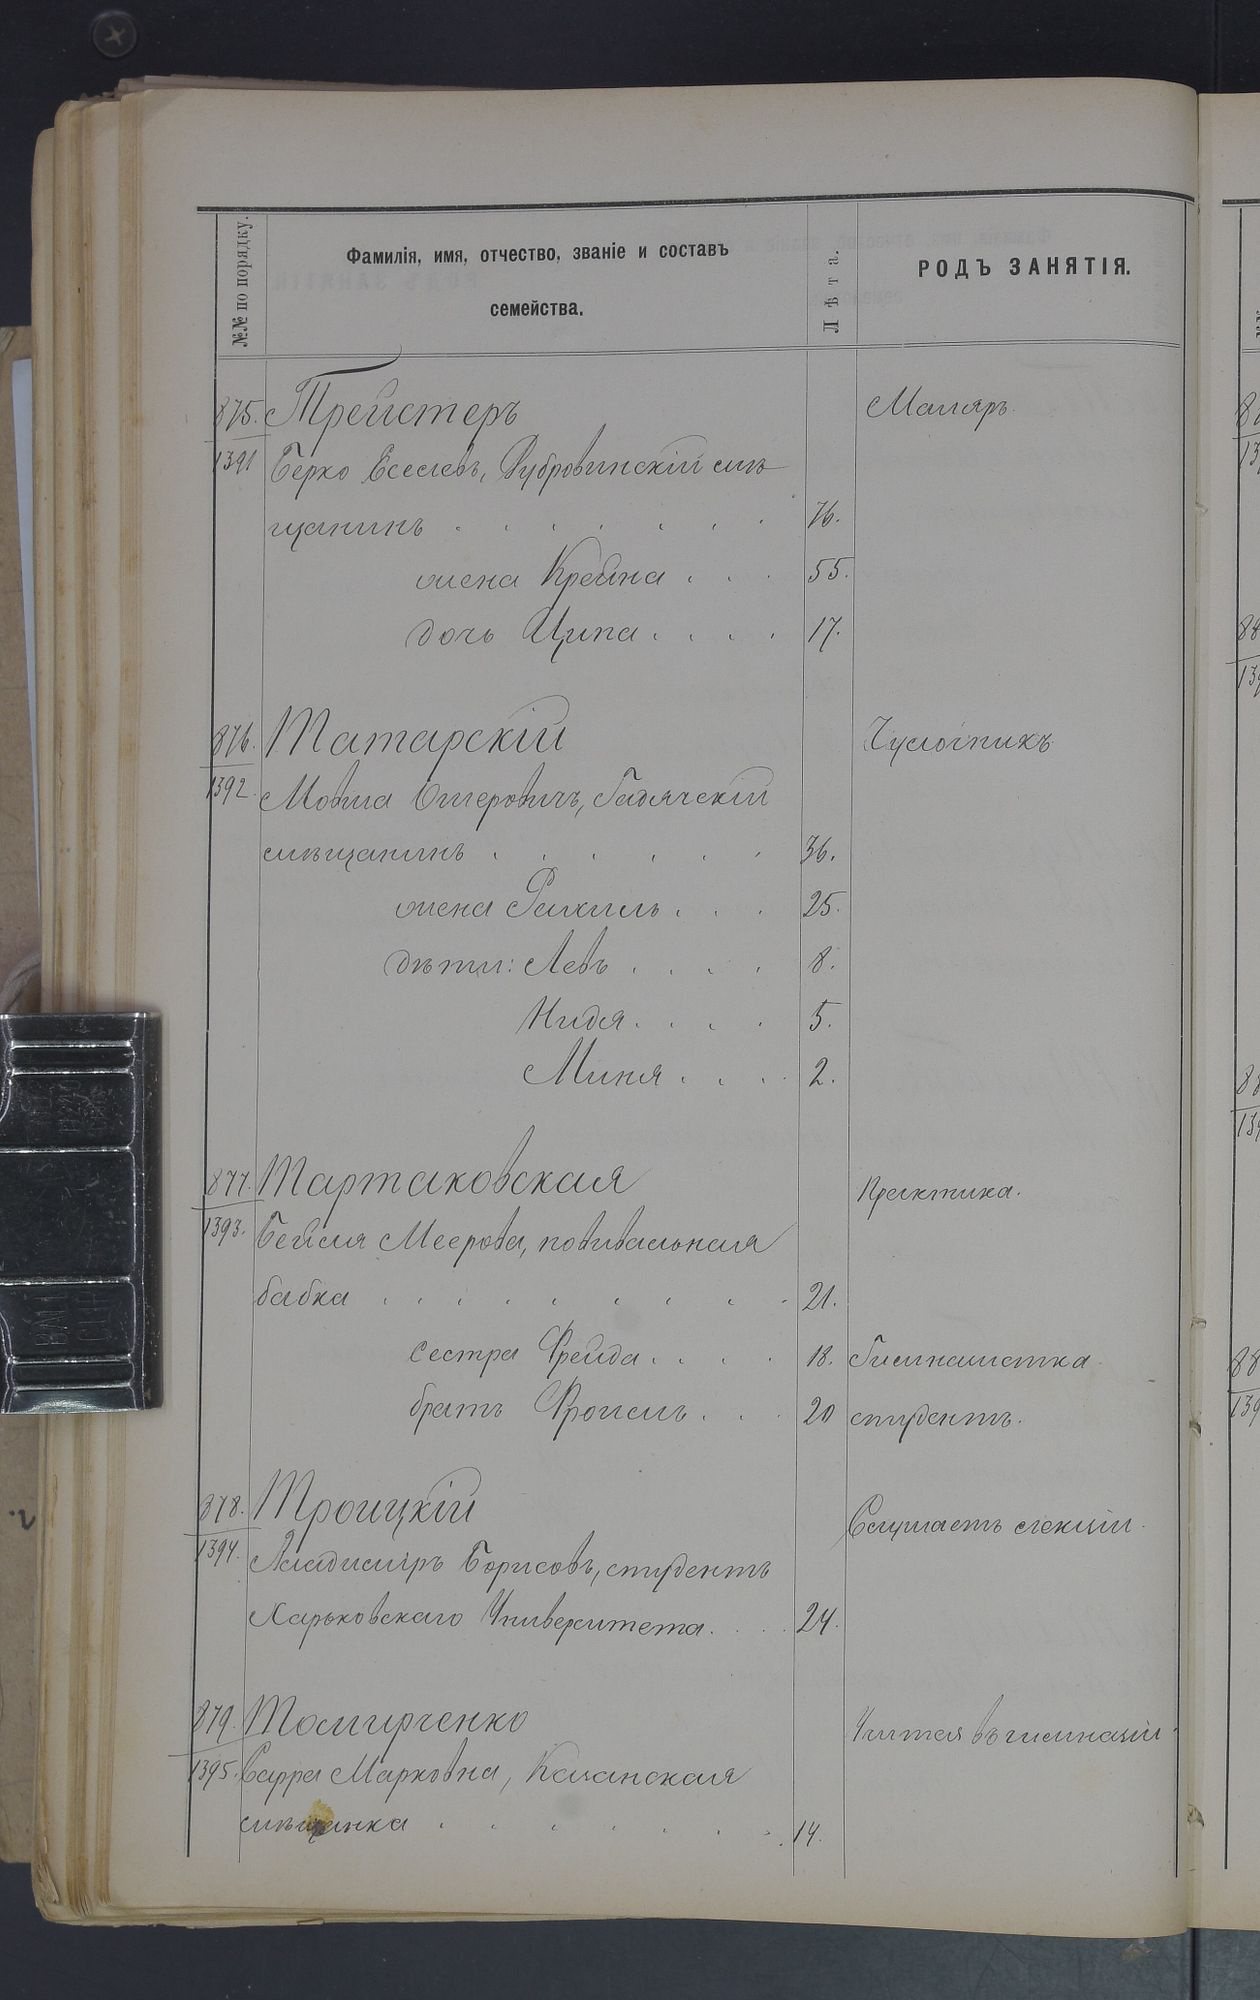 №№ по порядку.
Фамилія, имя, отчество, званіе и составъ
семейства.
Лѣта.
РОДЪ ЗАНЯТІЯ.
875. Трейстеръ Маляръ.
1391 Берко Еселевъ, Дубровинскій мѣ-
щанинъ . . . . . . . 76.
жена Крейна . . . 55.
дочь Ципа . . . . 17.
876. Татарскій Чулочникъ
1392. Мовша Ошеровичъ, Гадячскій
мѣщанинъ . . . . . . 36.
жена Рахиль . . . 25.
дѣти: Левъ . . . . 8.
Нидя . . . . 5.
Миня . . . . 2.
877. Тартаковская Практика.
1393. Бейля Меерова, повивальная
бабка . . . . . . . . . 21.
сестра Фрейда . . . . 18. Гимназистка.
братъ Фроимъ . . . 20 студентъ.
878. Троицкій Слушаетъ лекціи.
1394. Владиміръ Борисовъ, студентъ
Харьковскаго Университета . . . . 24.
879. Томирченко Учится въ гимназіи.
1395. Сарра Марковна,
мѣщанка . . . . . . . . 14.